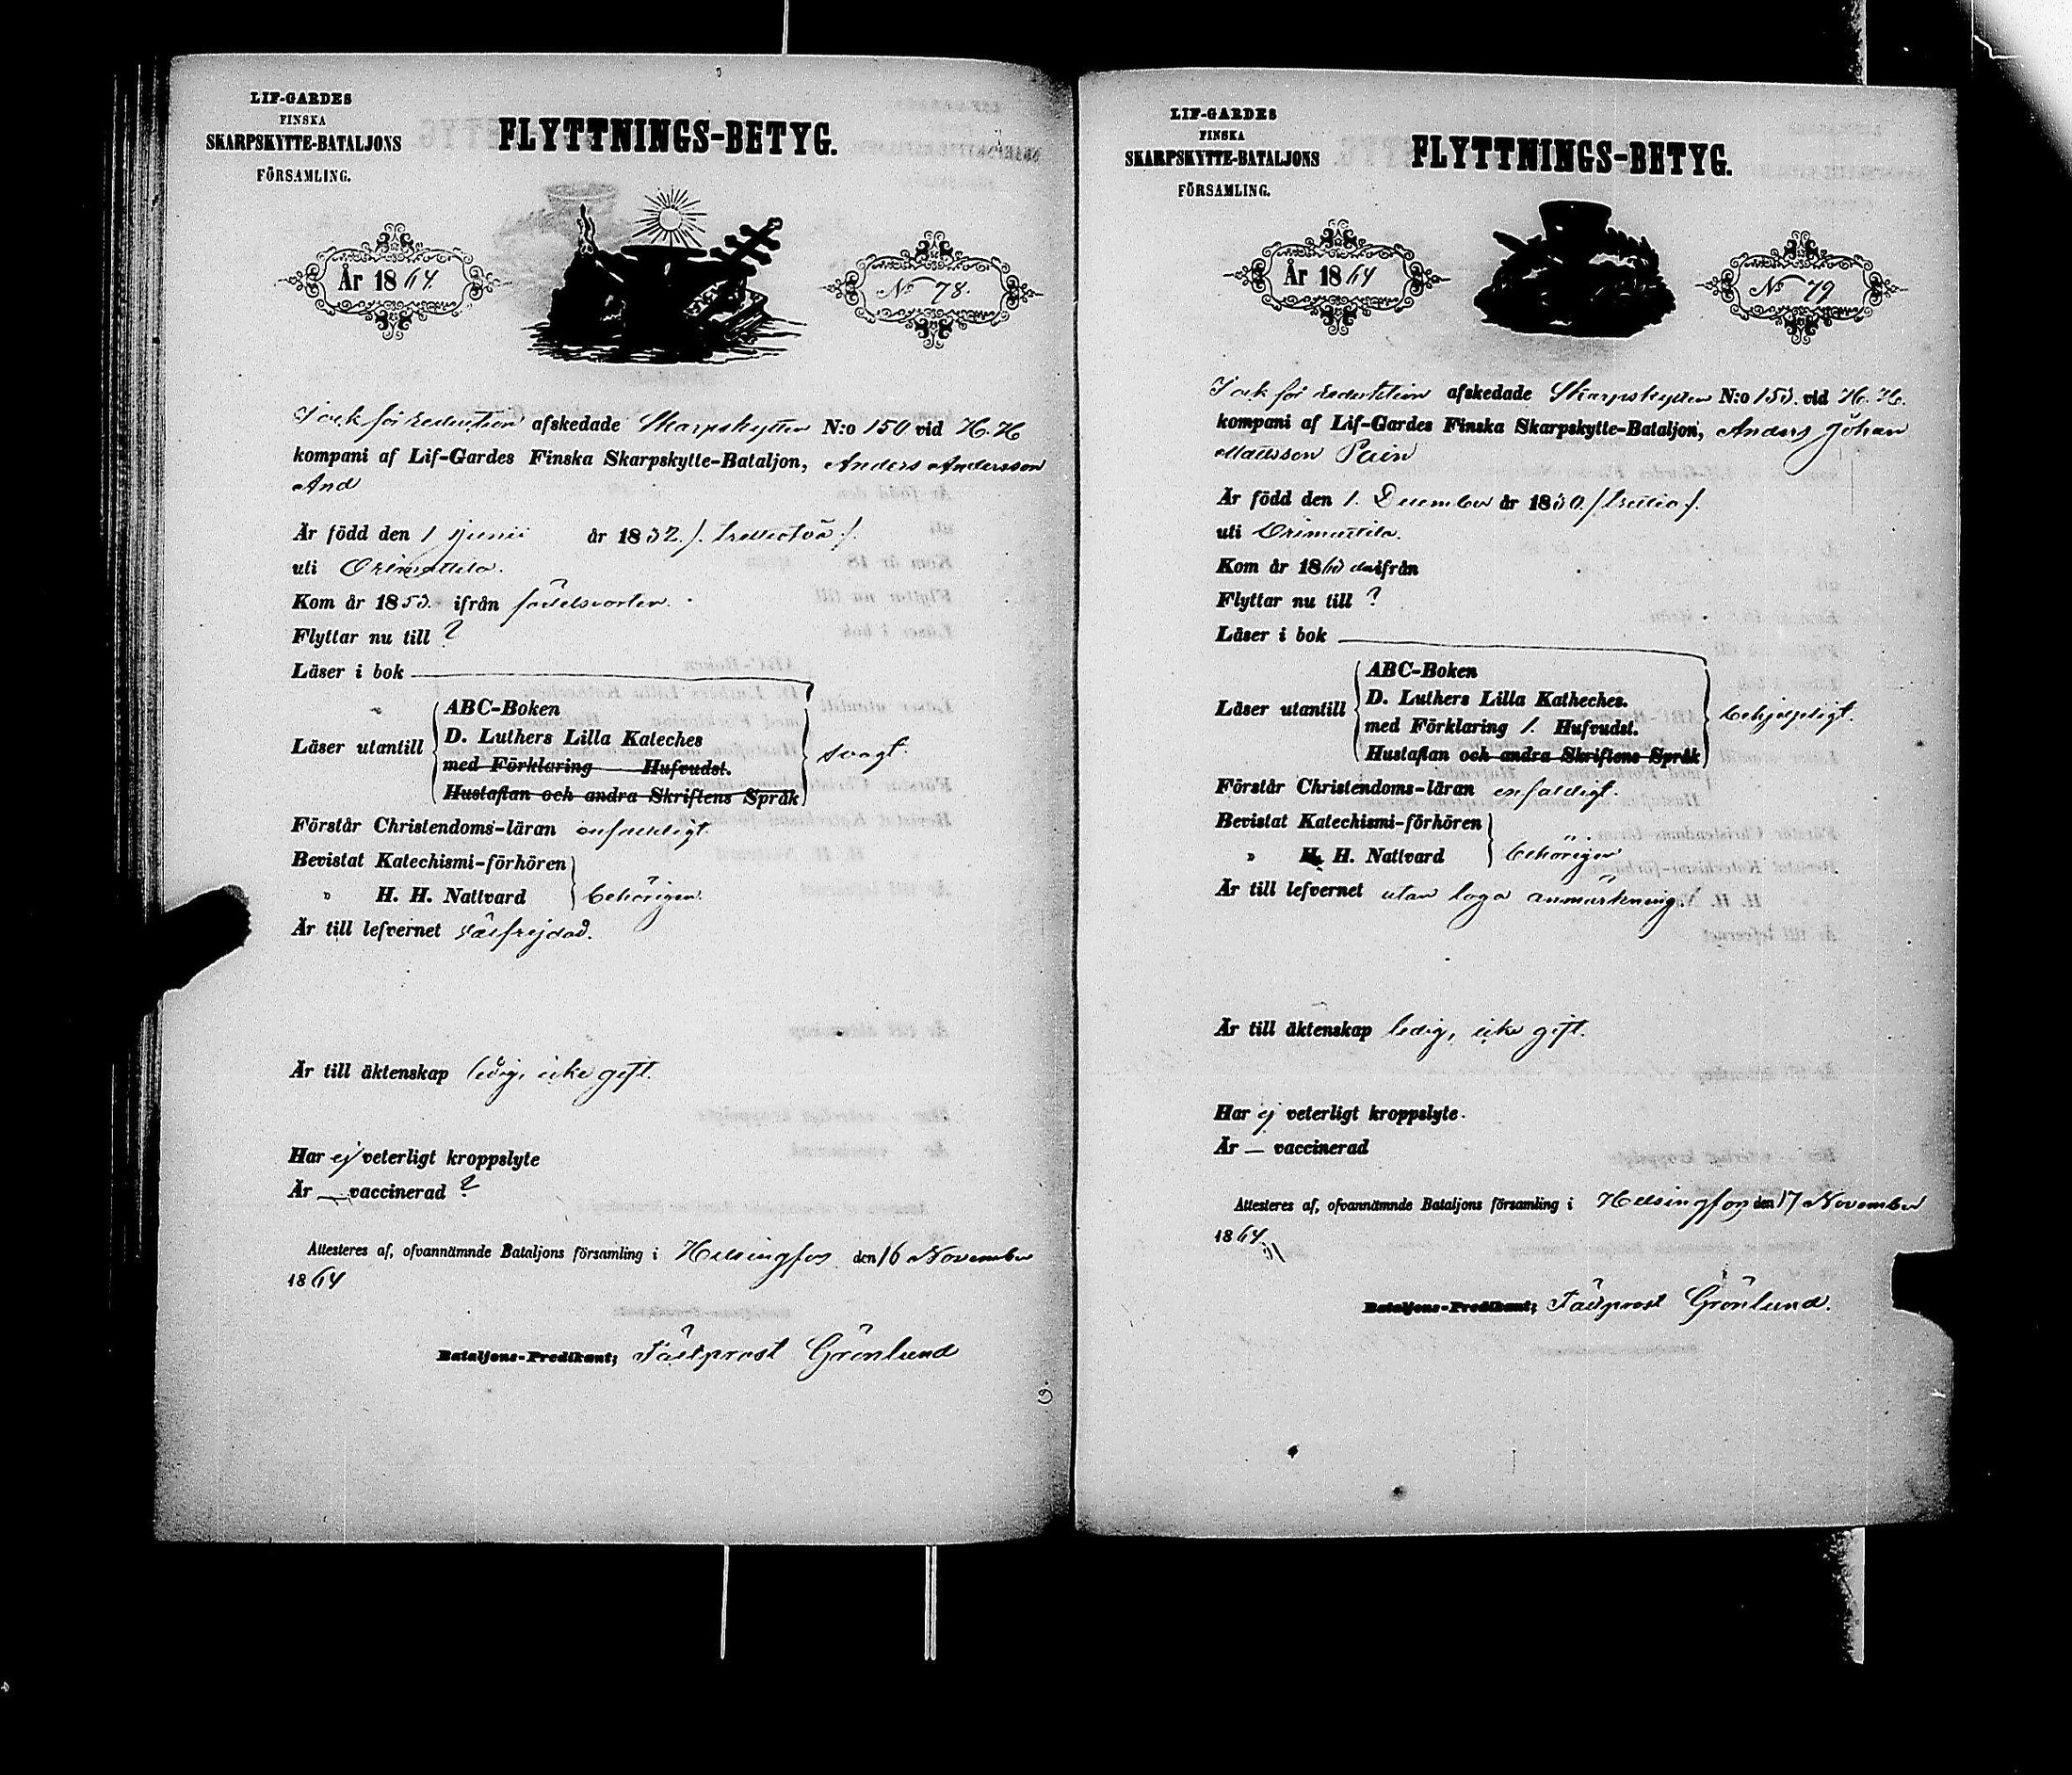 LIF-GARDES
FINSKA
SKARPSKYTTE-BATALJONS
FÖRSAMLING.
FLYTTNINGS-BETYG.
År 1864.
No 78.
för reduction afskedade Skarpskytten N:o 150 vid H. H
kompani af Lif-Gardes Finska Skarpskytte-Bataljon, Anders Andersson
And
Är född den 1 Junii år 1832 /. trettiotvå /.
uti Orimattila.
Kom år 1853. ifrån födelseorten.
Flyttar nu till ?
Läser i bok
Läser utantill
ABC-Boken
D. Luthers Lilla Kateches
med Förklaring Hufvudst.
Hustaflan och andra Skriftens Språk
svagt.
Förstår Christendoms-läran enfaldigt.
Bevistat Katechismi-förhören
" H. H. Nattvard
behörigen.
Är till lefvernet välfrejdad.
Är till äktenskap ledig, icke gift.
Har ej veterligt kroppslyte
Är — vaccinerad ?
Attesteres af, ofvannämnde Bataljons församling i Helsingfors den 16 November
1864
Bataljons-Predikant; Fältprost Grönlund
LIF-GARDES
FINSKA
SKARPSKYTTE-BATALJONS
FÖRSAMLING.
FLYTTNINGS-BETYG.
År 1864
No 79
för reduktion afskedade Skarpskytten N:o 153. vid H. H.
kompani af Lif-Gardes Finska Skarpskytte-Bataljon, Anders Johan
Mattsson
Är född den 1. December år 1830. /trettio/.
uti Orimattila.
Kom år 18 ifrån
Flyttar nu till ?
Läser i bok
Läser utantill
ABC-Boken
D. Luthers Lilla Katheches.
med Förklaring 1. Hufvudst.
Hustaflan och andra Skriftens Språk
behjelpligt.
Förstår Christendoms-läran enfaldigt.
Bevistat Katechismi-förhören
" H. H. Nattvard
behörigen
Är till lefvernet utan laga anmärkning.
Är till äktenskap ledig, icke gift.
Har ej veterligt kroppslyte.
Är — vaccinerad
Attesteres af, ofvannämnde Bataljons församling i Helsingfors den 17 November
1864
Bataljons-Predikant; Fältprost Grönlund.